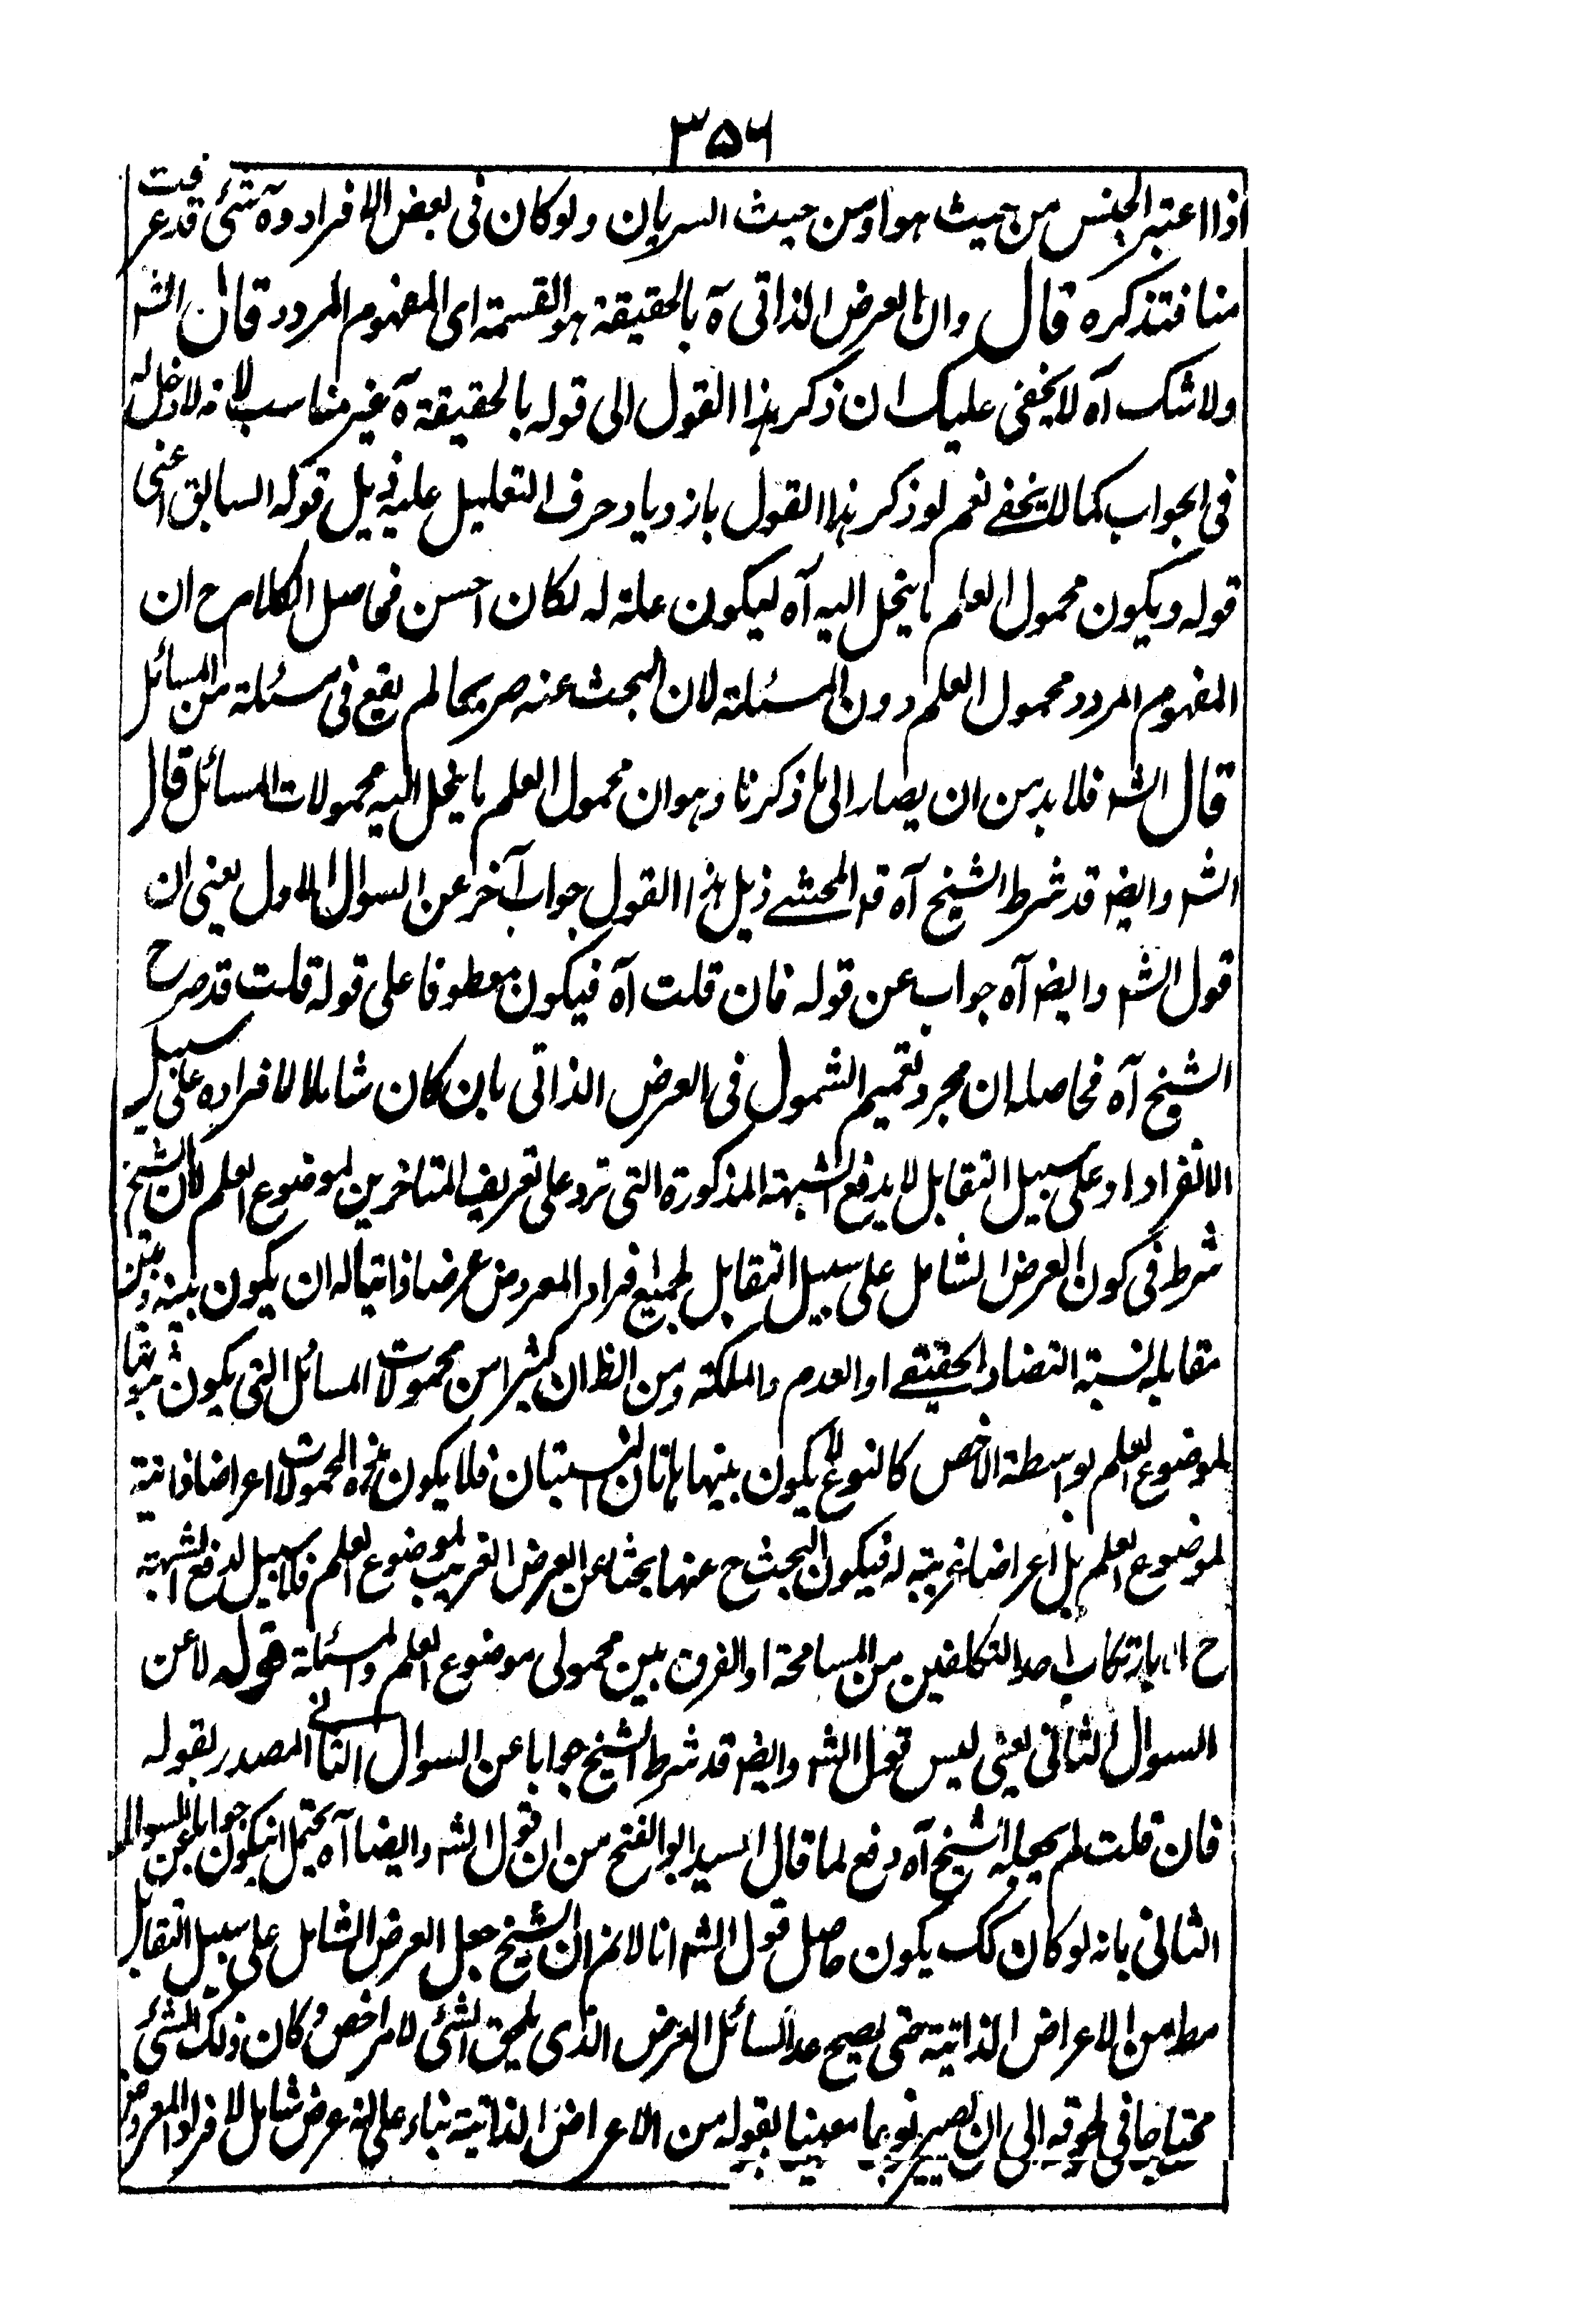 ٣٥٦
اذا اعتبر الجنس من حيث هو او من حيث السريان ولو كان فى بعض الافراد وه شئ قد عرفت
منا فتذكره قال وان العرض الذاتى ه بالحقيقة هو القسمة اى المفهوم المردد قال الشر
ولا شك آه لا يخفى عليك ان ذكر هذا القول الى قوله بالحقيقة ه غير مناسب لانه لا دخل له
فى الجواب كما لا يخفے نعم لو ذكر هذا القول بازدياد حرف التعليل عليه ذيل قوله السابق اعنى
قوله ويكون محمول العلم ما ينحل اليه آه ليكون علة له لكان احسن فحاصل الكلام ح ان
المفهوم المردد محمول العلم دون المسئلة لان البحث عنه صريحا لم يقع فى مسئلة من المسائل
قال الشر فلا بد من ان يصار الى ما ذكرنا وهو ان محمول العلم ما ينحل اليه محمولات المسائل قال
الشر وايضر قد شرط الشيخ آه قد المحشے ذيل هذا القول جواب آخر عن السوال الاول يعنى ان
قول الشر وايضر آه جواب عن قوله فان قلت آه فيكون معطوفا على قوله قلت قد صرح
الشيخ آه فحاصله ان مجرد تعميم الشمول فى العرض الذاتى بان كان شاملا لافراده على سبيل
الانفراد او على سبيل التقابل لا يدفع الشبهة المذكورة التى ترد على تعريف المتاخرين لموضوع العلم لان الشيخ
شرط فى كون العرض الشامل على سبيل التقابل لجميع افراد المعروض عرضا ذاتيا له ان يكون بينه وبين
مقابله نسبة التضاد الحقيقے او العدم والملكة ومن الظ ان كثيرا من محمولات المسائل التى يكون ثبوتها
لموضوع العلم بواسطة الاخص كالنوع لا يكون بينها هاتان النسبتان فلا يكون هذه المحمولات اعراضا ذاتية
لموضوع العلم بل اعراضا غريبة له فيكون البحث ح عنها بحثا عن العرض الغريب لموضوع العلم فلا سبيل لدفع الشبهة
ح الا بارتكاب احد التكلفين من المسامحة او الفرق بين محمولى موضوع العلم والمسئلة قوله لا عن
السوال الثانى يعنى ليس قول الشر وايضر قد شرط الشيخ جوابا عن السوال الثانے المصدر بقوله
فان قلت لم يجعله الشيخ آه دفع لما قال السيد ابو الفتح من ان قول الشر وايضا آه يحتمل ان يكون جوابا عن السوال
الثانى بانه لو كان كك يكون حاصل قول الشر انا لانم ان الشيخ جعل العرض الشامل على سبيل التقابل
مطر من الاعراض الذاتية حتى يصح عد المسائل العرض الذى يلحق الشئ لامر اخص وكان ذلك الشئ
محتاجا فى لحوقه الى ان يصير نوعا معينا بقوله من الاعراض الذاتية بناء على انه عرض شامل لافراد المعروض